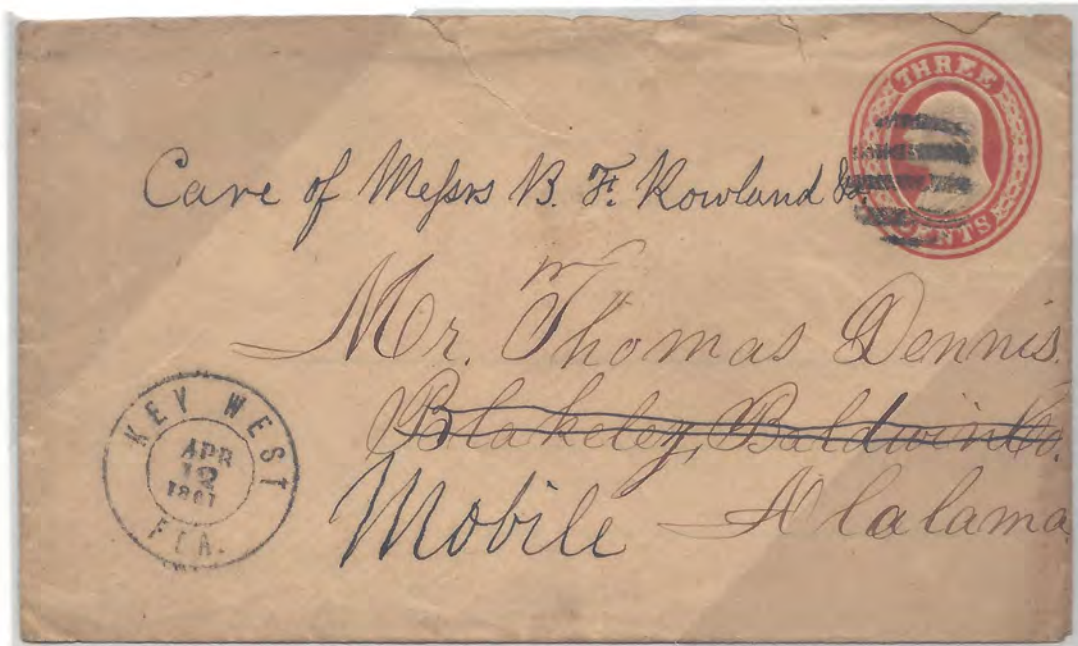 THREE
CENTS
Care of Messrs B. F. Rowland &Co
Mr. Thomas Dennis.
Blakeley, Baldwin Co.
Mobile Alabama
KEY WEST
APR
12
1861
FLA.